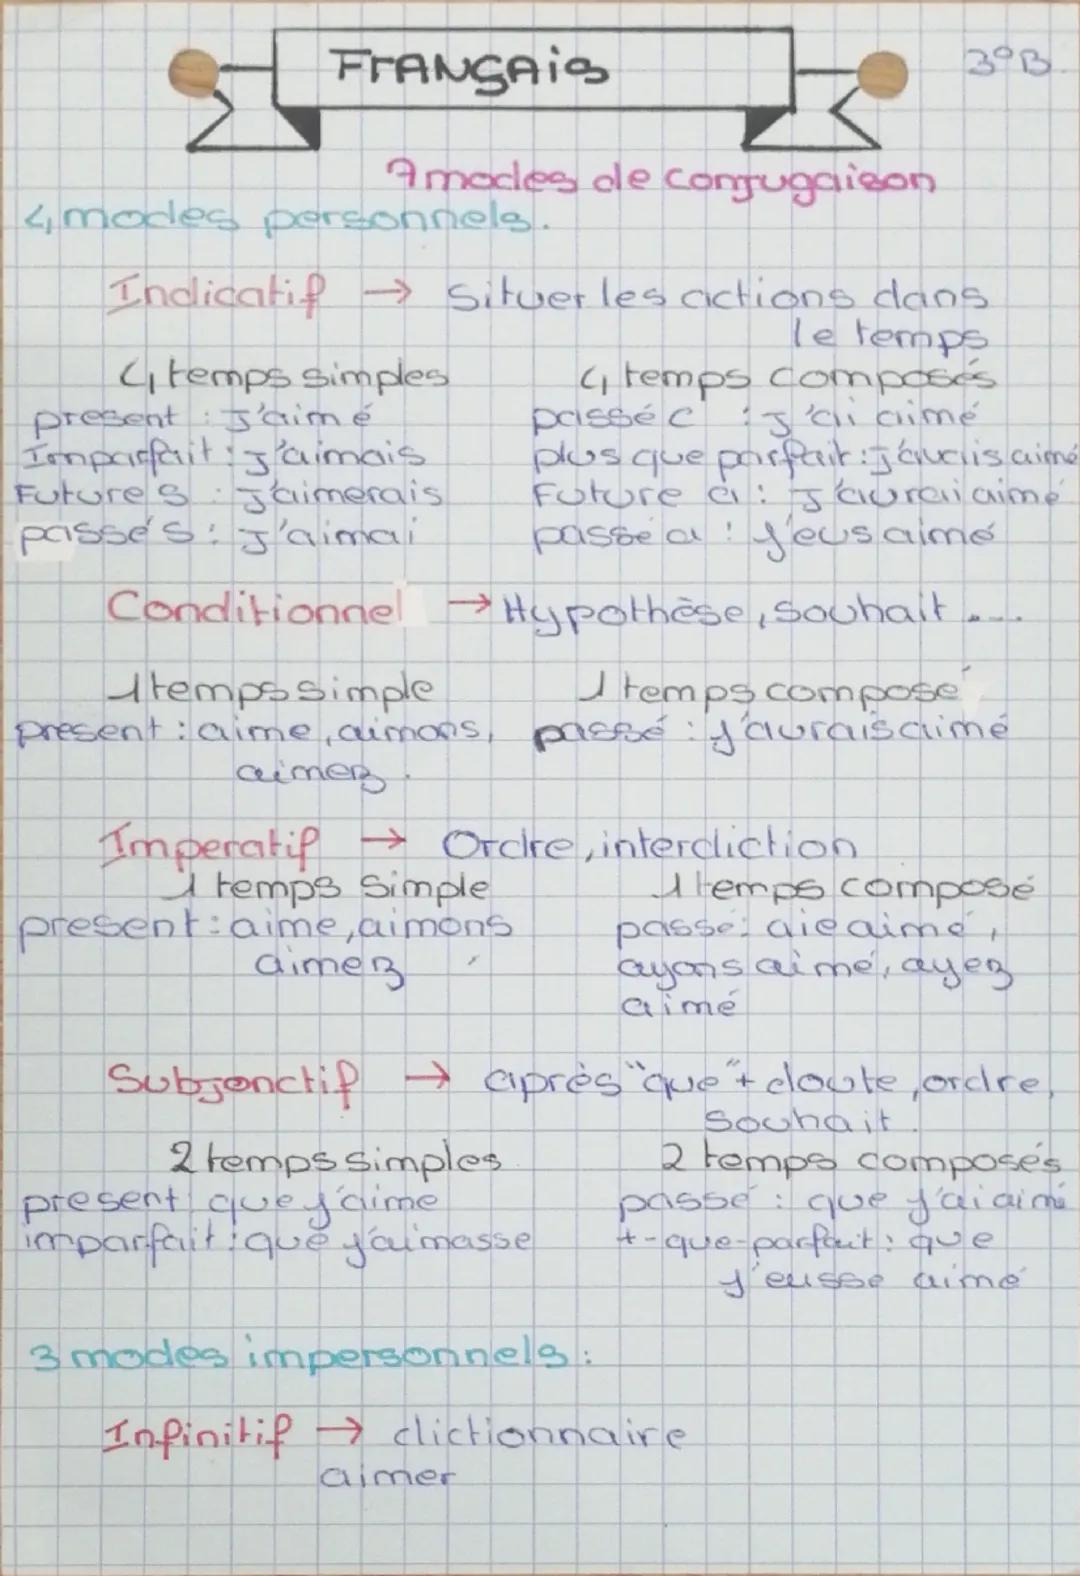 FrANÇAis
3°B.
7 modes de conjugaison
4 modes personnels.
Indicatif → Situer les actions dans
le temps
4 temps simples 4 temps composés
present : J'aimé passé c : j'ai aimé
Imparfait : j'aimais plus que parfait : j'avais aimé
Future s : J'aimerais Future a : J'aurai aimé
passé s : J'aimai passé a : j'eus aimé
Conditionnel → Hypothèse, souhait ....
1 temps simple 1 temps composé
present : aime, aimons, passé : j'aurais aimé
aimez.
Imperatif → Ordre, interdiction
1 temps simple 1 temps composé
present : aime, aimons passé : aie aimé,
aimez ayons aimé, ayez
aimé
Subjonctif → après "que" + doute, ordre,
souhait.
2 temps simples 2 temps composés
present : que j'aime passé : que j'ai aimé
imparfait : que j'aimasse +-que-parfait : que
j'eusse aimé
3 modes impersonnels :
Infinitif → dictionnaire
aimer